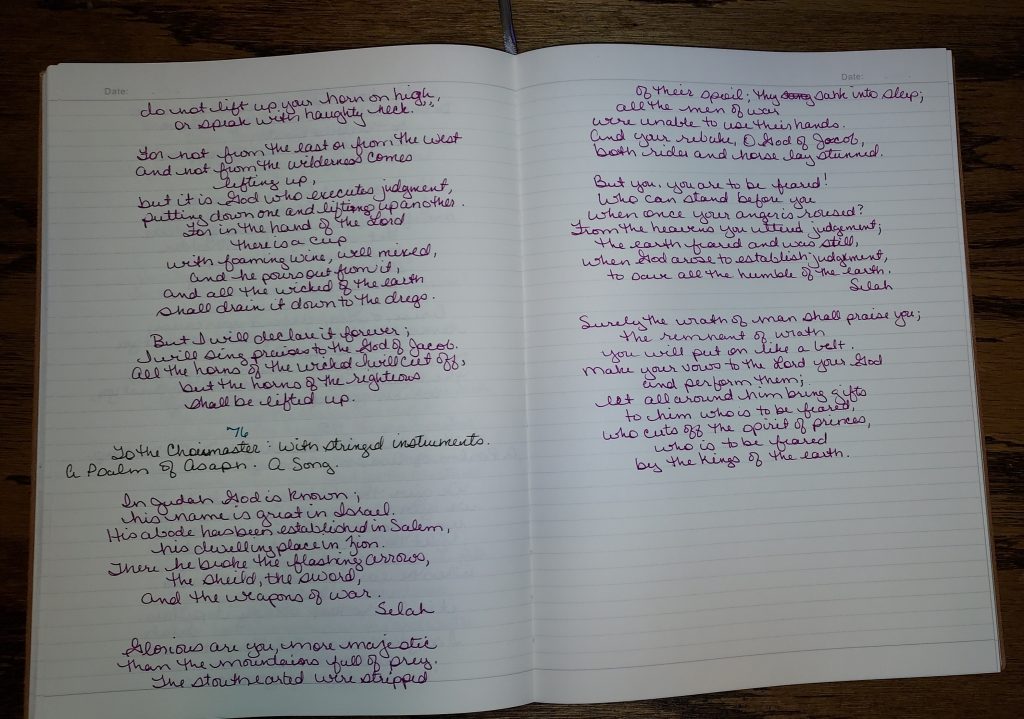 Date:
do not lift up your horn on high,
or speak with haughty neck."
For not from the east or from the west
and not from the wilderness comes
lifting up,
but it is God who executes judgment,
putting down one and lifting up another.
For in the hand of the Lord
there is a cup
with foaming wine, well mixed,
and he pours out from it,
and all the wicked of the earth
shall drain it down to the dregs.
But I will declare it forever;
I will sing praises to the God of Jacob.
All the horns of the wicked I will cut off,
but the horns of the righteous
shall be lifted up.
76
To the Choirmaster: with stringed instruments.
A Psalm of Asaph. A Song.
In Judah God is known;
his name is great in Israel.
His abode has been established in Salem,
his dwelling place in Zion.
There he broke the flashing arrows,
the sheild, the sword,
and the weapons of war.
Selah
Glorious are you, more majestic
than the mountains full of prey.
The stouthearted were stripped
Date:
of their spoil; they sank into sleep;
all the men of war
were unable to use their hands.
And your rebuke, O God of Jacob,
both rider and horse lay stunned.
But you, you are to be feared!
Who can stand before you
when once your anger is roused?
From the heavens you uttered judgement;
the earth feared and was still,
when God arose to establish judgment,
to save all the humble of the earth.
Selah
Surely the wrath of man shall praise you;
the remnent of wrath
you will put on like a belt.
Make your vows to the Lord your God
and perform them;
let all around him bring gifts
to him who is to be feared,
who cuts off the spirit of princes,
who is to be feared
by the kings of the earth.